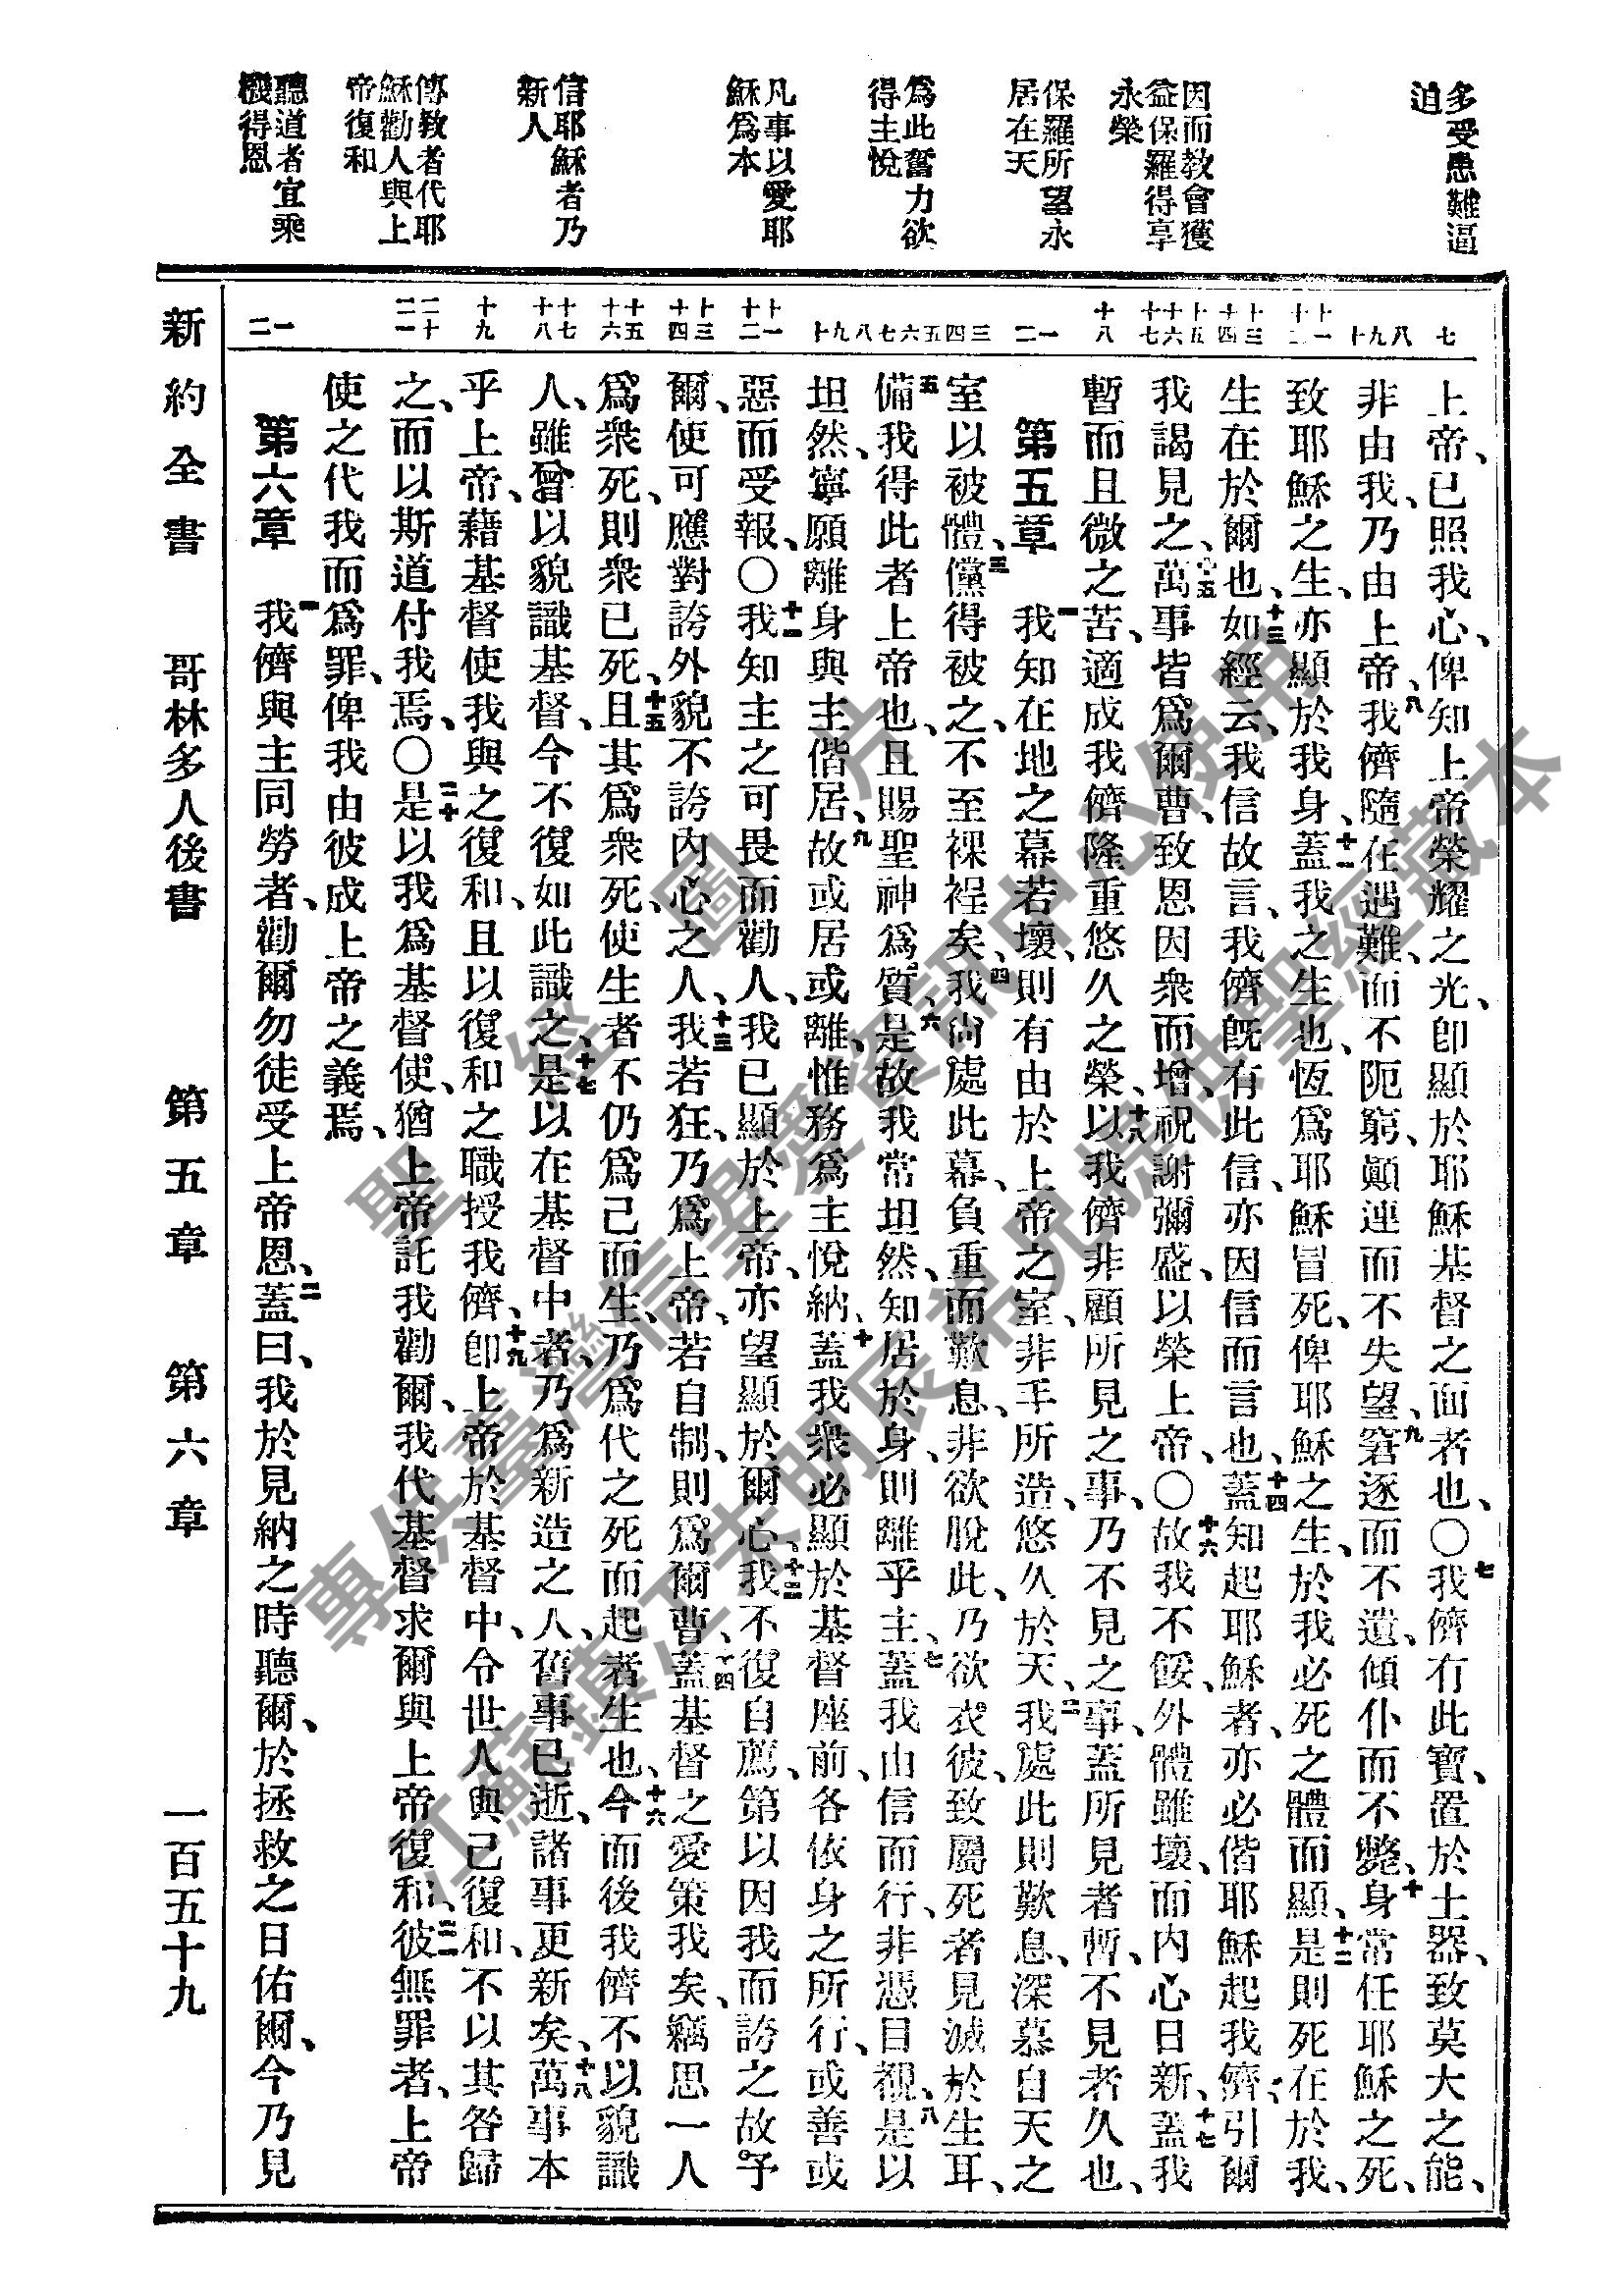 多受患難逼
迫
因而教會獲
益保羅得享
永榮
保羅所望永
居在天
爲此奮力欲
得主悅
凡事以愛耶
穌爲本
信耶穌者乃
新人
傳教者代耶
穌勸人與上
帝復和
聽道者宜乘
機得恩
七
八
九
十
十一
十二
十三
十四
十五
十六
十七
十八
一
二
三
四
五
六
七
八
九
十
十一
十二
十三
十四
十五
十六
十七
十八
十九
二十
二一
一
二
上帝、已照我心、俾知上帝榮耀之光、卽顯於耶穌基督之面者也、〇七我儕有此寶、置於土器、致莫大之能、
非由我、乃由上帝、八我儕隨在遇難、而不阨窮、顚連而不失望、九窘逐而不遺、傾仆而不斃、十身常任耶穌之死、
致耶穌之生、亦顯於我身、十一蓋我之生也、恆爲耶穌冒死、俾耶穌之生、於我必死之體而顯、十二是則死在於我、
生在於爾也、十三如經云、我信故言、我儕旣有此信、亦因信而言也、十四蓋知起耶穌者、亦必偕耶穌起我儕、引爾
我謁見之、十五萬事皆爲爾曹、致恩因衆而增、祝謝彌盛、以榮上帝、〇十六故我不餒、外體雖壞、而內心日新、十七蓋我
暫而且微之苦、適成我儕隆重悠久之榮、十八以我儕非顧所見之事、乃不見之事、蓋所見者暫、不見者久也、
第五章　一我知在地之幕若壞、則有由於上帝之室、非手所造、悠久於天、二我處此則歎息、深慕自天之
室以被體、三儻得被之、不至裸裎矣、四我尙處此幕、負重而歎息、非欲脫此、乃欲衣彼、致屬死者見滅於生耳、
五備我得此者上帝也、且賜聖神爲質、六是故我常坦然、知居於身、則離乎主、七蓋我由信而行、非憑目覩、八是以
坦然、寧願離身與主偕居、九故或居或離、惟務爲主悅納、十蓋我衆必顯於基督座前、各依身之所行、或善或
惡而受報、〇十一我知主之可畏而勸人、我已顯於上帝、亦望顯於爾心、十二我不復自薦、第以因我而誇之故予
爾、使可應對誇外貌不誇內心之人、十三我若狂、乃爲上帝、若自制、則爲爾曹、十四蓋基督之愛策我矣、竊思一人
爲衆死、則衆已死、十五且其爲衆死、使生者不仍爲己而生、乃爲代之死而起者生也、十六今而後我儕不以貌識
人、雖曾以貌識基督、今不復如此識之、十七是以在基督中者、乃爲新造之人、舊事已逝、諸事更新矣、十八萬事本
乎上帝、藉基督使我與之復和、且以復和之職授我儕、十九卽上帝於基督中、令世人與己復和、不以其咎歸
之、而以斯道付我焉、〇二十是以我爲基督使、猶上帝託我勸爾、我代基督求爾與上帝復和、二一彼無罪者、上帝
使之代我而爲罪、俾我由彼成上帝之義焉、
第六章　一我儕與主同勞者、勸爾勿徒受上帝恩、二蓋曰、我於見納之時聽爾、於拯救之日佑爾、今乃見
新約全書　哥林多人後書　第五章　第六章　一百五十九
聖經圖片
專供臺灣信望愛資訊中心使用
江蘇鎮江朱明辰弟兄提供聖經藏本